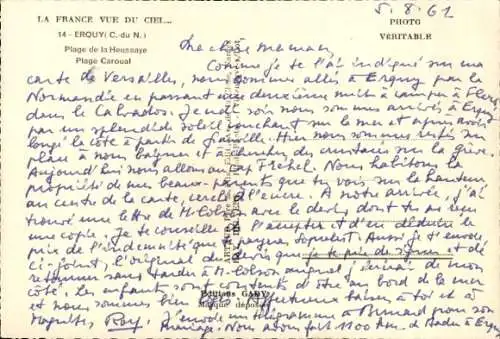 LA FRANCE VUE DU CIEL...
14 - ERQUY (C. du N.)
Plage de la Heussaye
Plage Caroual
PHOTO
VÉRITABLE
5.8.61
Ma chère maman,
Comme je te l'ai indiqué sur ma
carte de Versailles, nous sommes allés à Erquy par la
Normandie en passant une deuxième nuit à camper à Flers
dans le Calvados. Jeudi soir nous sommes arrivés à Erquy
par un splendide soleil couchant sur la mer et après avoir
longé la côte à partir de Hier nous sommes restés sur
place à nous baigner et à chercher des crustacés sur la grève.
Aujourd'hui nous allons au Cap Fréhel. Nous habitons la
propriété de mes beaux-parents que tu vois sur la hauteur
au centre de la carte, cerclé à l'encre. A notre arrivée, j'ai
trouvé une lettre de M. Colson avec le devis dont tu as reçu
une copie. Je te conseille de l'accepter et d'en déduire le
prix de l'indemnité que te payera Aussi je t'envoie
ci-joint, l'original du devis que je te prie de signer et de
retourner sans tarder à M. Colson auquel j'écrirai de mon
côté. Les enfants sont contents d'être au bord de la mer
et nous sommes bien Affectueux baisers à toi et à
Roger J'envoie un télégramme à pour son
mariage. Nous avons fait 1100 km de à Erquy
Editions GABY
Marque déposée